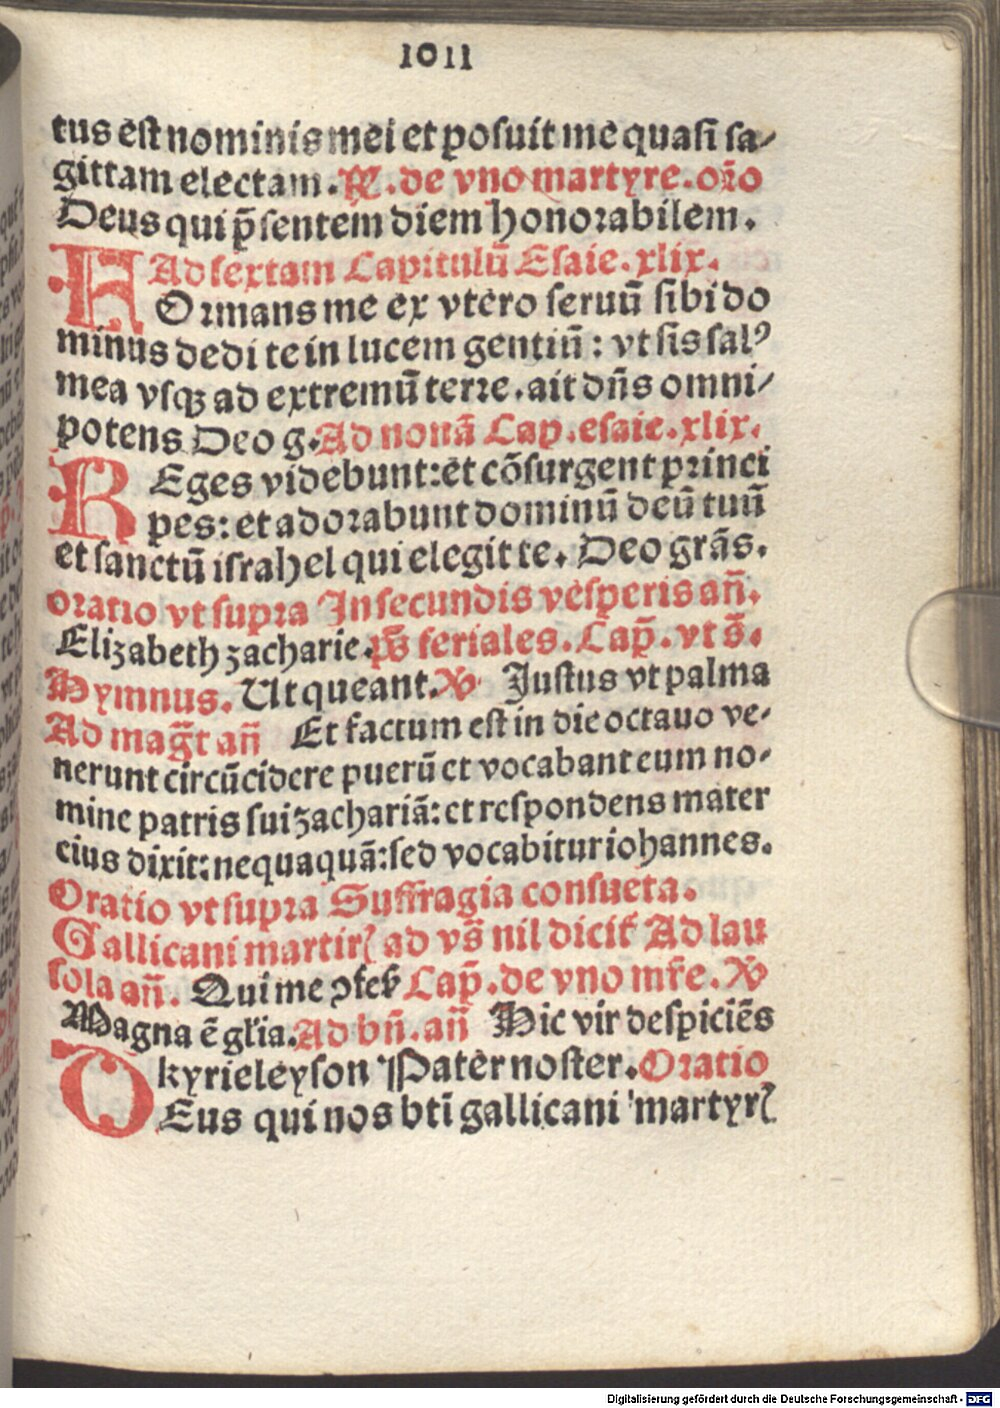 1011
tus est nominis mei et posuit me quasi sa⸗
gittam electam. ℟. de vno martyre. oro̅
Deus qui p̄sentem diem honorabilem.
Ad sextam Capitulū Esaie. xlix.
FOrmans me ex vtero seruū sibi do
minus dedi te in lucem gentiū: vt sis salꝰ
mea vsqꝫ ad extremū terre. ait dn̄s omni⸗
potens Deo g. Ad nonā Cap. esaie. xlix.
REges videbunt: et cōsurgent princi
pes: et adorabunt dominū deū tuū
et sanctū israhel qui elegit te. Deo grās.
oratio vt supra In secundis vesperis an̄.
Elizabeth zacharie. ps̄ feriales. Cap̄. vt s̄.
Hymnus. Ut queant. ℣ Justus vt palma
Ad magt̄ an̄ Et factum est in die octauo ve⸗
nerunt circūcidere puerū et vocabant eum no⸗
mine patris sui zachariā: et respondens mater
eius dixit: nequaquā: sed vocabitur iohannes.
Oratio vt supra Suffragia consueta.
Gallicani martirꝭ ad vs̄ nil dicit̄ Ad lau
sola an̄. Qui me ꝯfeẜ Cap̄. de vno mr̄e. ℣
Magna ē gl̄ia. Ad bn̄. an̄ Hic vir despiciēs
kyrieleyson Pater noster. Oratio
DEus qui nos bt̄i gallicani martyrꝭ
Digitalisierung gefördert durch die Deutsche Forschungsgemeinschaft - DFG